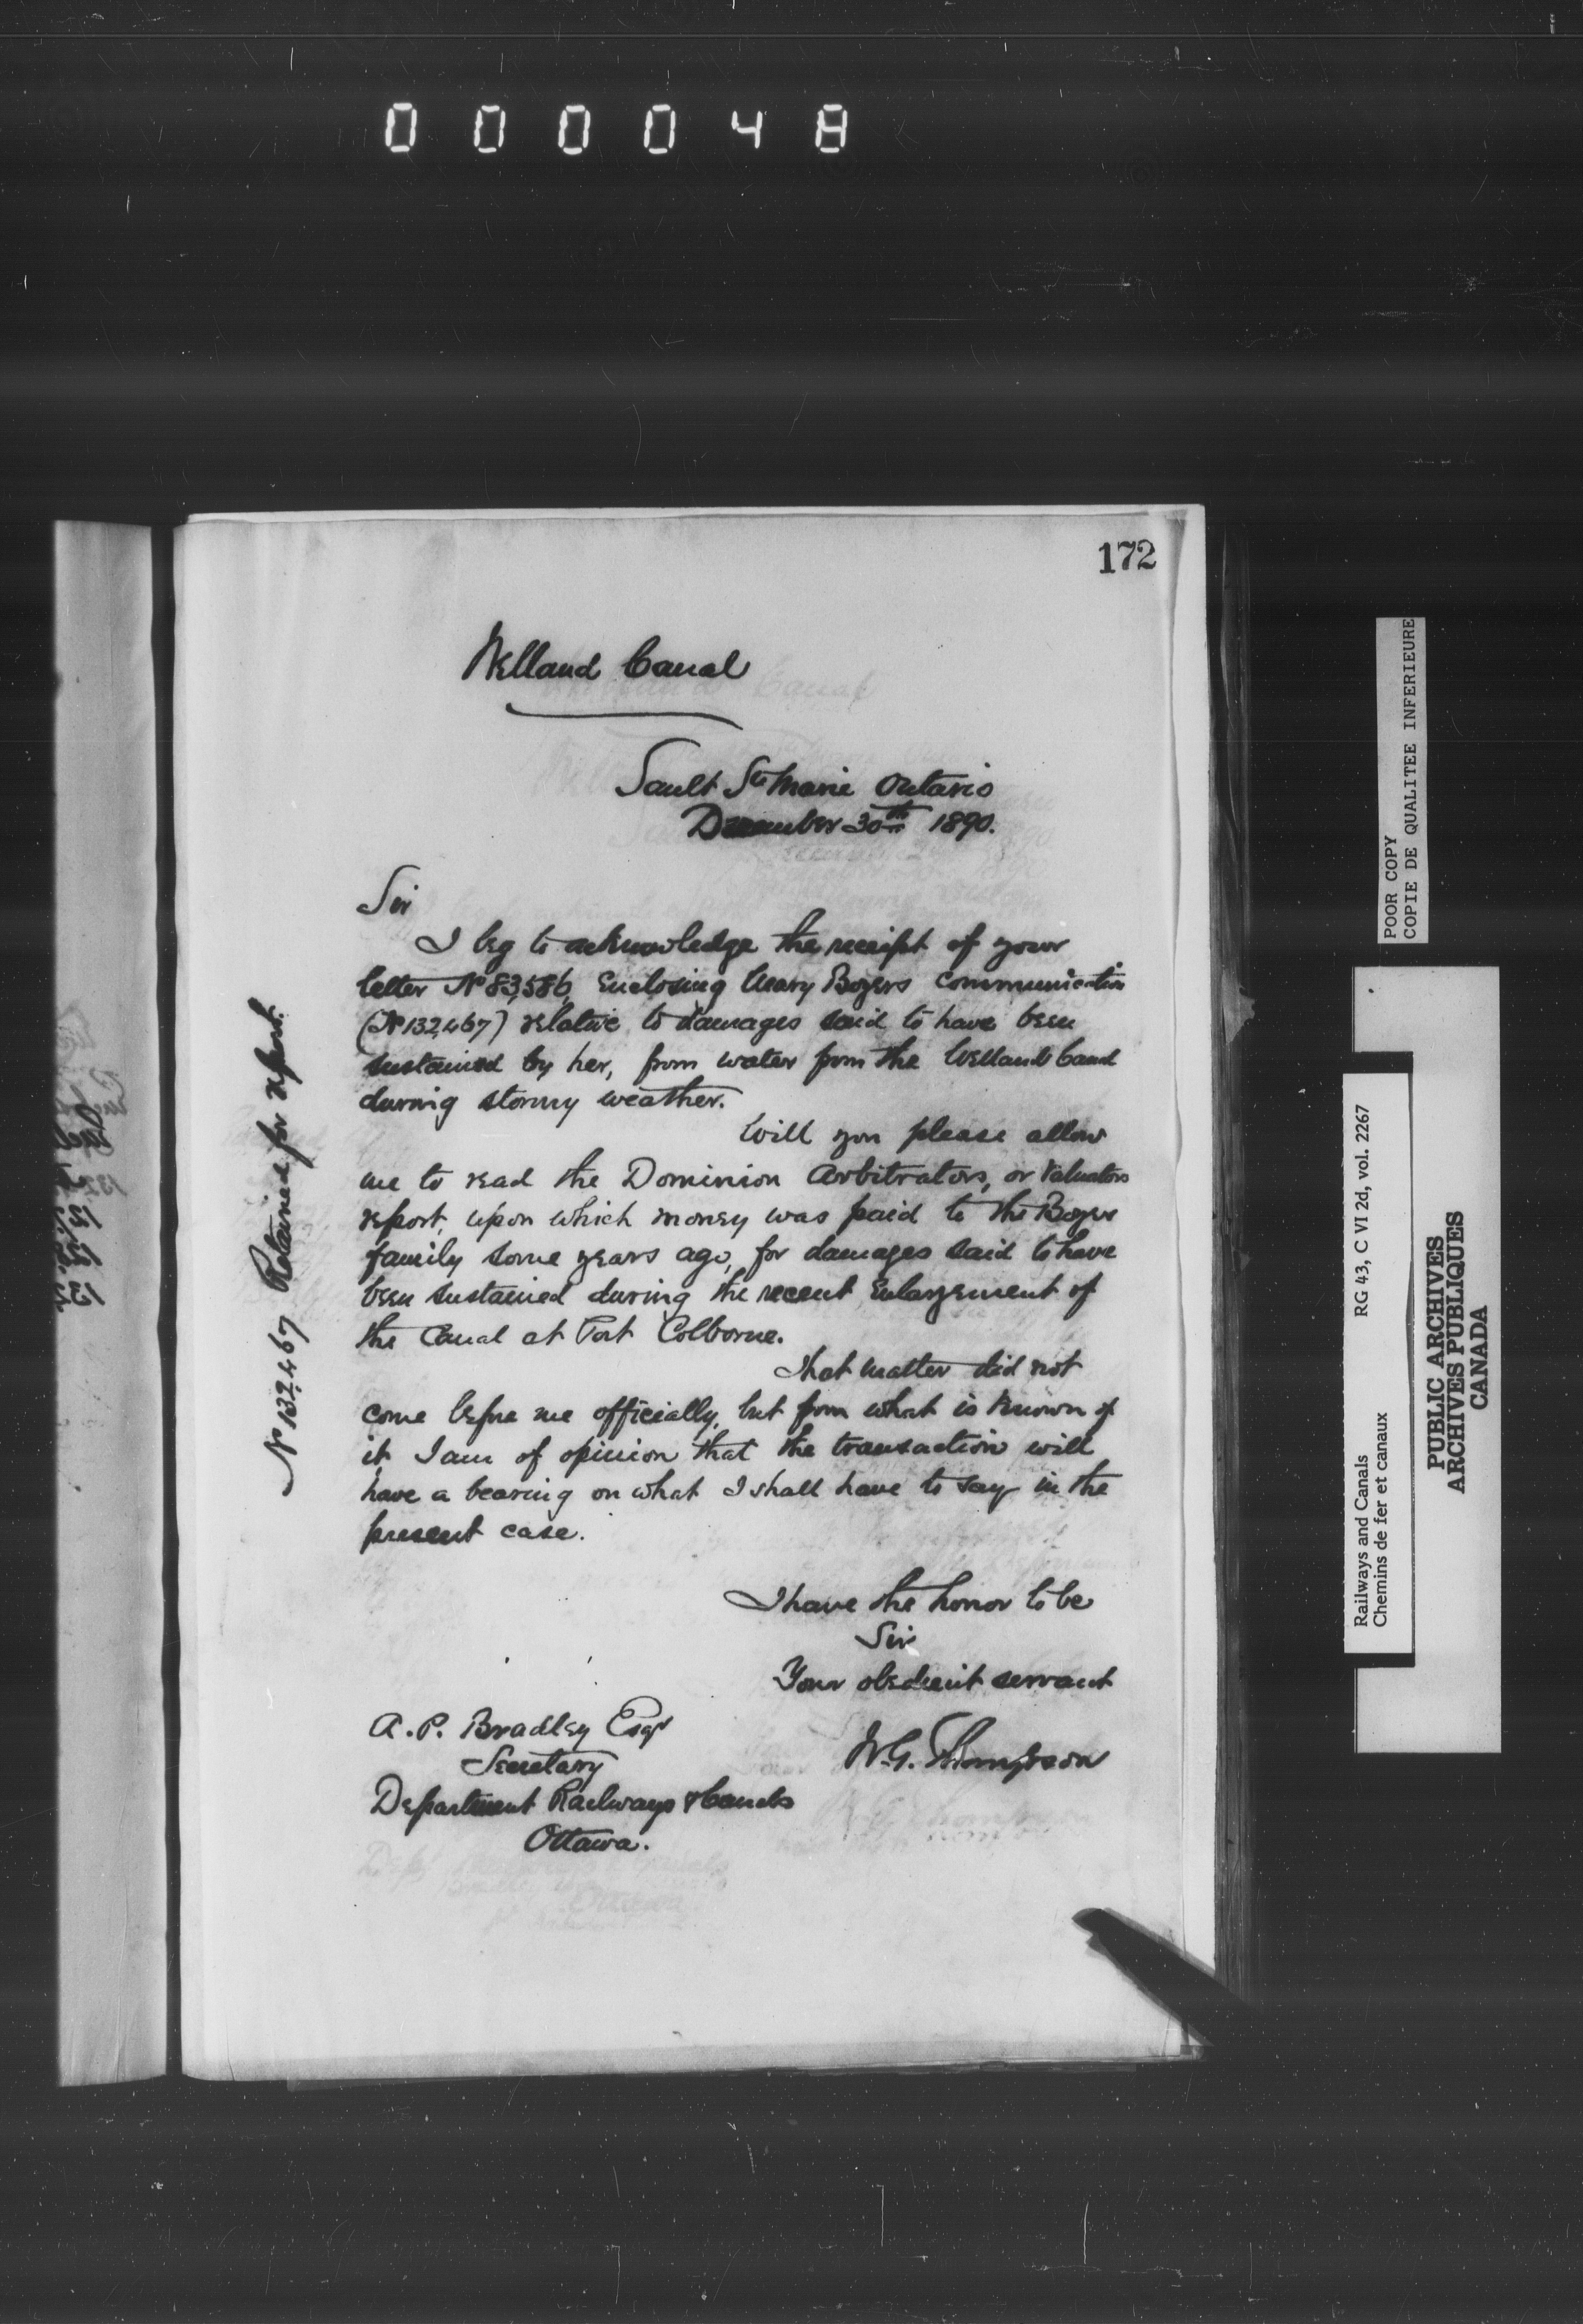 000048
172
Welland Canal
Sault Ste Marie Ontario
December 30th 1890.
Sir
I beg to acknowledge the receipt of your
letter No 83,586, Enclosing Mary Boyers Communication
(No 132,467) relative to damages said to have been
sustained by her, from water from the Welland Canal
during stormy weather.
Will you please allow
me to read the Dominion Arbitrators, or Valuators
report, upon which money was paid to the Boyer
family some years ago, for damages said to have
been sustained during the recent Enlargement of
the Canal at Port Colborne.
That matter did not
come before me officially, but from what is Known of
it I am of opinion that the transaction will
have a bearing on what I shall have to say in the
present case.
I have the honor to be
Sir
Your obedient servant
W. G. Thompson
A. P. Bradley Esqr
Secretary
Department Railways & Canals
Ottawa.
No 132467 Retained for report.
POOR COPY
COPIE DE QUALITEE INFERIEURE
Railways and Canals RG 43, C VI 2d, vol. 2267
Chemins de fer et canaux
PUBLIC ARCHIVES
ARCHIVES PUBLIQUES
CANADA